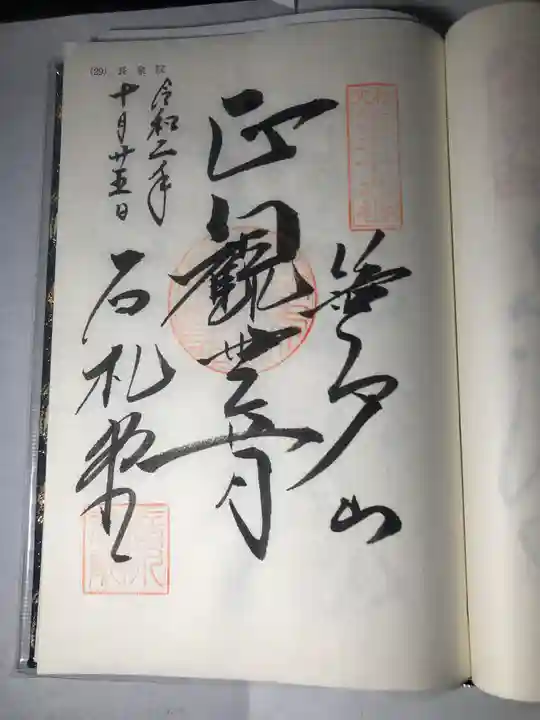 (29) 長泉院
笹戸山
正觀世音
令和二年
十月廿五日
石札堂